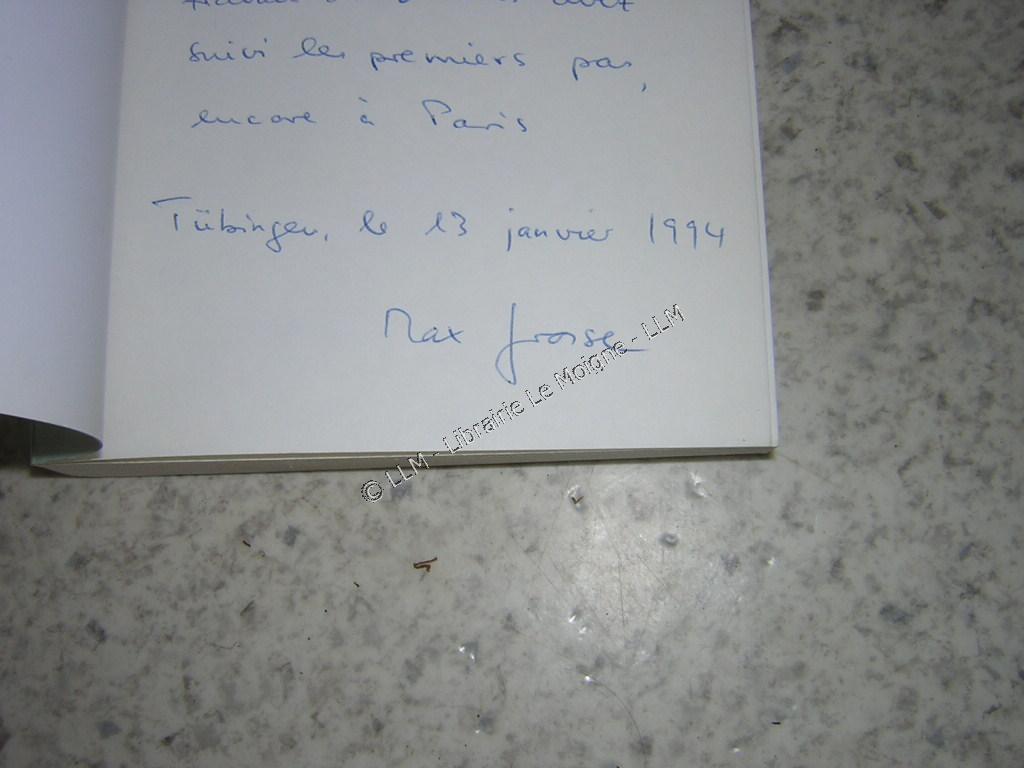 suivi les premiers pas,
encore à Paris
Tübingen, le 13 janvier 1994
Max Grosse
© LLM - Librairie Le Moigne - LLM